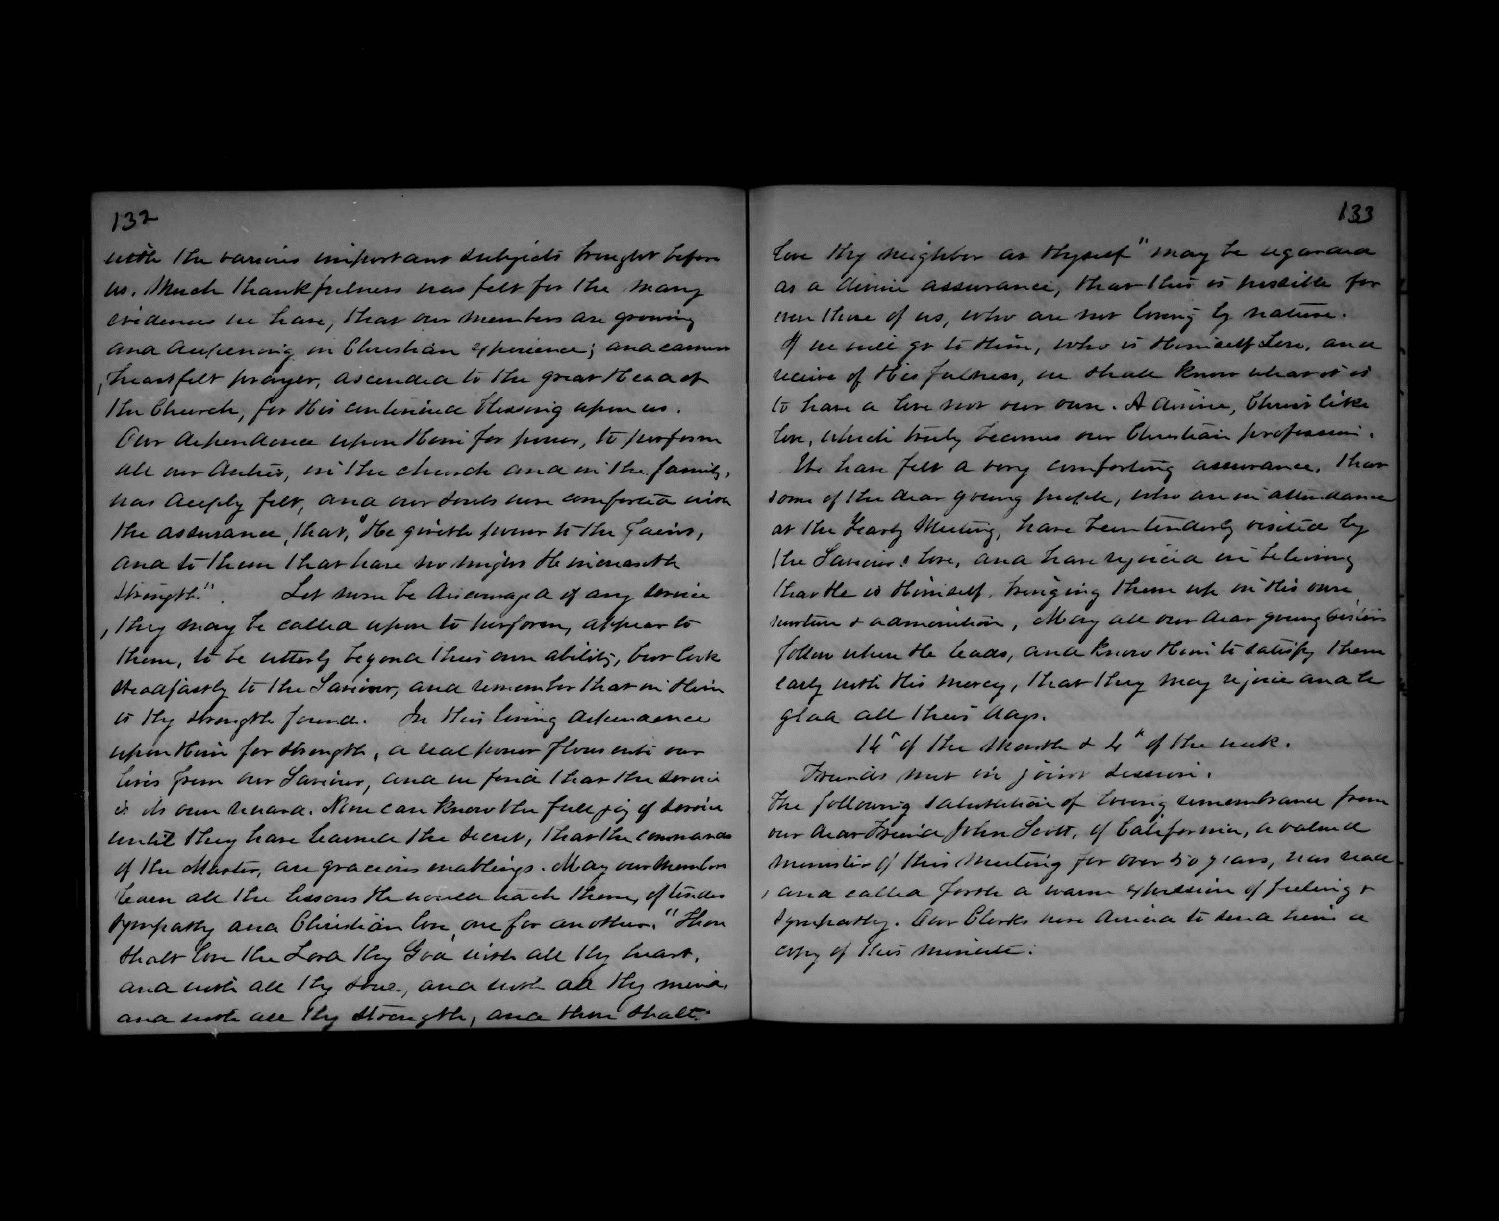 132
with the various important subjects brought before
us. Much thankfulness was felt for the many
evidences we have, that our members are growing
and deepening in Christian experience; and earnest
, heartfelt prayer, ascended to the great Head of
the Church, for His continued blessing upon us.
Our dependence upon Him for power, to perform
all our duties, in the church and in the family,
was deeply felt, and our souls were comforted with
the assurance, that, "He giveth power to the faint,
and to them that have no might He increaseth
strength". Let none be discouraged if any service
, they may be called upon to perform, appear to
them, to be utterly beyond their own ability, but look
steadfastly to the Saviour, and remember that in Him
is thy strength found. In this living dependence
upon Him for strength, a real power flows into our
lives from our Saviour, and we find that the service
is its own reward. None can know the full joy of service
until they have learned the secret, that the commands
of the Master, are gracious enablings. May our members
learn all the lessons He would teach them, of tender
sympathy and Christian love, one for another. "Thou
shalt love the Lord thy God with all thy heart,
and with all thy soul, and with all thy mind,
and with all thy strength, and thou shalt
133
love thy neighbor as thyself" may be regarded
as a divine assurance, that this is possible for
even those of us, who are not loving by nature.
If we will go to Him, who is Himself Love, and
receive of His fulness, we shall know what it is
to have a love not our own. A divine, Christlike
love, which truly becomes our Christian profession.
We have felt a very comforting assurance, that
some of the dear young people, who are in attendance
at the Yearly Meeting, have been tenderly visited by
the Saviour's love, and have rejoiced in believing
that He is Himself, bringing them up in His own
nurture & admonition, May all our dear young sisters
follow where He leads, and know Him to satisfy them
early with His mercy, that they may rejoice and be
glad all their days.
14" of the Month & 4" of the week.
Friends met in joint session.
The following salutation of loving remembrance from
our dear Friend John Scott, of California, a valued
minister of this Meeting for over 50 years, was read
, and called forth a warm expression of feeling &
sympathy. Our Clerks were directed to send him a
copy of this minute: